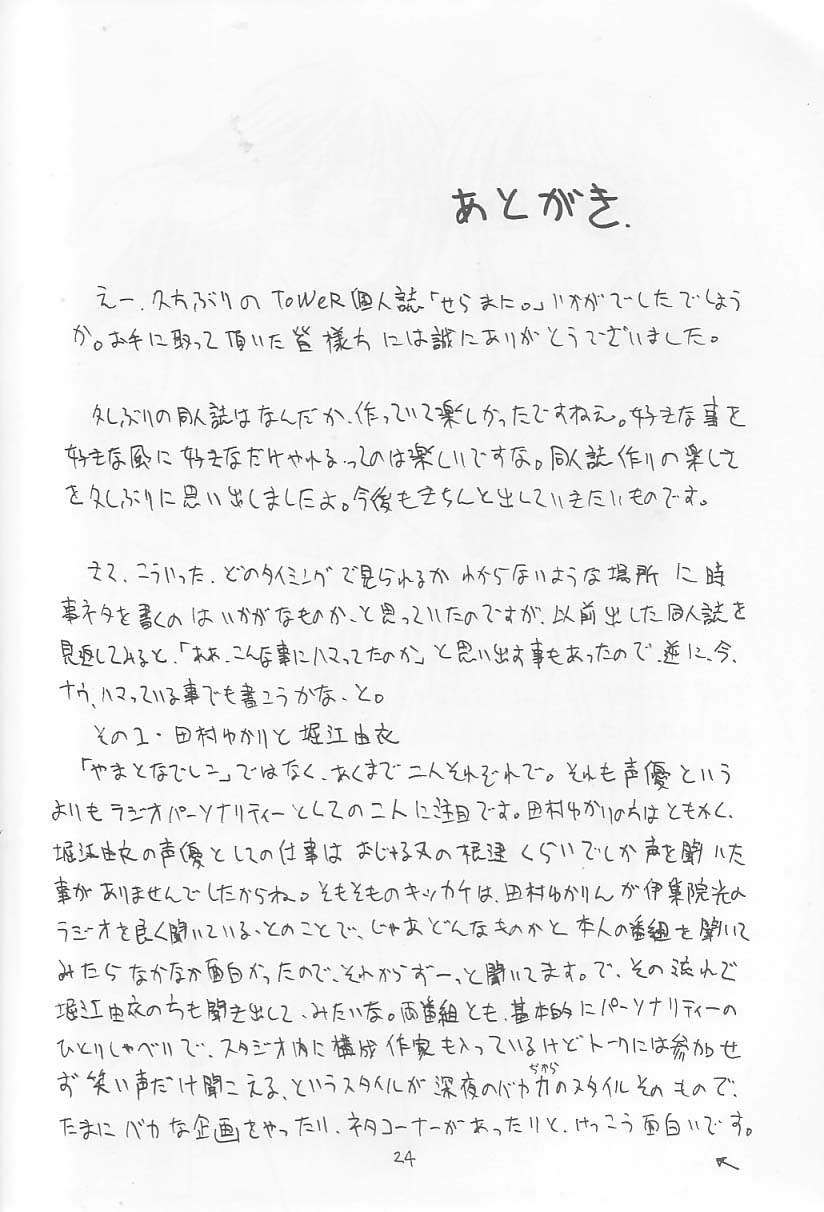 あとがき.
えー、久方ぶりのToWeR個人誌「せらまに。」いかがでしたでしょう
か。お手に取って頂いた皆様方には誠にありがとうございました。
久しぶりの同人誌はなんだか、作っていて楽しかったですねえ。好きな事を
好きな風に好きなだけやれるってのは楽しいですな。同人誌作りの楽しさ
を久しぶりに思い出しましたよ。今後もきちんと出していきたいものです。
さて、こういった、どのタイミングで見られるかわからないような場所に時
事ネタを書くのはいかがなものか、と思っていたのですが、以前出した同人誌を
見返してみると、「ああ、こんな事にハマってたのか」と思い出す事もあったので、逆に、今、
ナウ、ハマっている事でも書こうかな、と。
その1・田村ゆかりと堀江由衣
「やまとなでしこ」ではなく、あくまで二人それぞれで。それも声優という
よりもラジオパーソナリティーとしての二人に注目です。田村ゆかりの方はともかく、
堀江由衣の声優としての仕事はおじゃる丸の
くらいでしか声を聞いた
事がありませんでしたからね。そもそものキッカケは、田村ゆかりんが伊集院光の
ラジオを良く聞いている、とのことで、じゃあどんなものかと本人の番組を聞いて
みたらなかなか面白かったので、それからずーっと聞いてます。で、その流れで
堀江由衣の方も聞き出して、みたいな。両番組とも、基本的にパーソナリティーの
ひとりしゃべりで、スタジオ内に構成作家も入っているけどトークには参加せ
ず笑い声だけ聞こえる、というスタイルが深夜のバカ力(ぢから)のスタイルそのもので、
たまにバカな企画をやったり、ネタコーナーがあったりと、けっこう面白いです。
24
↖